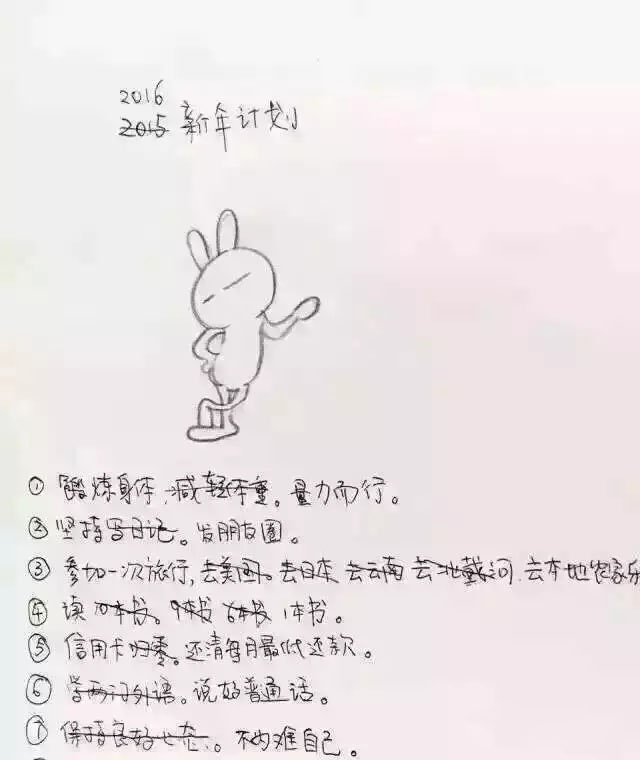 2016
2015 新年计划
① 锻炼身体,减轻体重。量力而行。
② 坚持写日记。发朋友圈。
③ 参加一次旅行,去美国。去日本 去云南 去北戴河 去本地农家乐
④ 读10本书。9本书 6本书 1本书。
⑤ 信用卡归零。还清每月最低还款。
⑥ 学两门外语。说好普通话。
⑦ 保持良好心态。不为难自己。